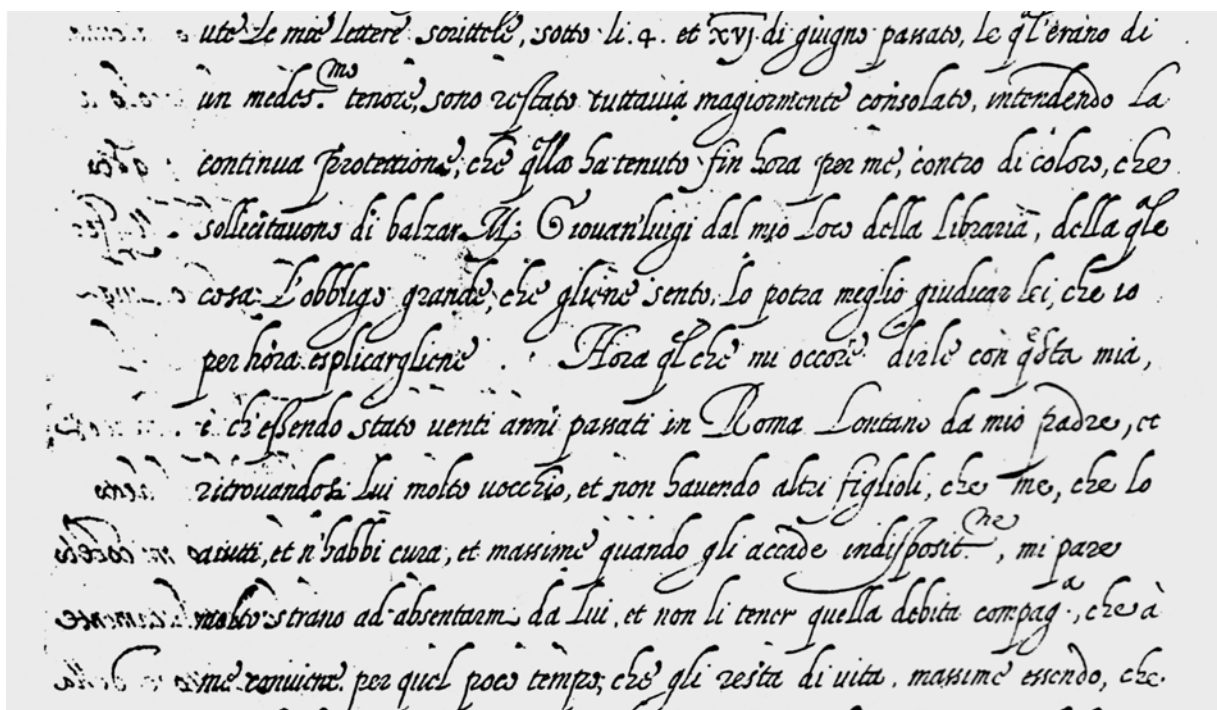 ute le mie lettere scrittele, sotto li. 4. et xvj di giugno passato, le ql' erano di
un medes.mo tenore, sono restato tuttauia magiormente consolato, intendendo la
continua protettione, che qlla ha tenuto fin hora per me, contro di coloro, che
sollicitauono di balzar M. Giouan'luigi dal mio loco della libraria, della qle
cosa L'obbligo grande, che gliene sento, lo potra meglio giudicar lei, che io
per hora esplicargliene. Hora ql che mi occore dirle con qsta mia,
è ch'essendo stato uenti anni passati in Roma Lontano da mio padre, et
ritrouandosi Lui molto uecchio, et non hauendo altri figlioli, che me, che lo
aiutti, et n'habbi cura, et massime quando gli accade indisposit.ne, mi pare
molto strano ad absentarm da Lui, et non li tener quella debita compag.a, che à
me conuiene per quel poco tempo, che gli resta di uita. massime essendo, che